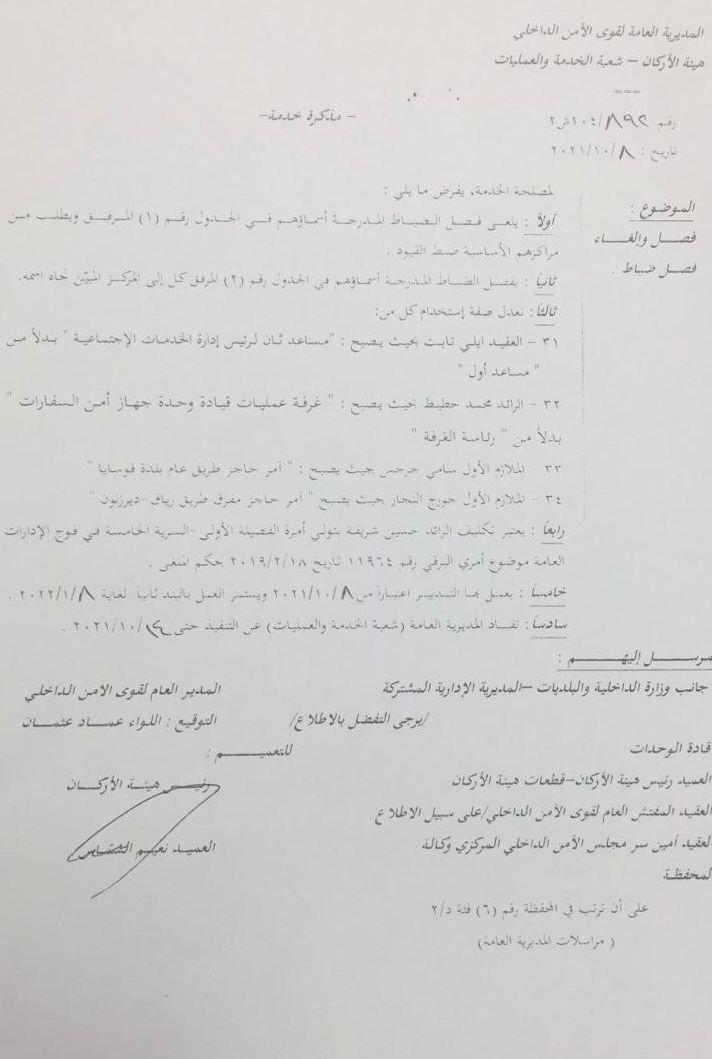 المديرية العامة لقوى الأمن الداخلي
هيئة الأركان – شعبة الخدمة والعمليات
===
رقم ٢٠٤/٨٩٢ ش٢
– مذكرة خدمة –
تاريخ : ٢٠٢١/١٠/٨
الموضوع :
فصل وإلغاء
فصل ضباط .
لمصلحة الخدمة، يفرض ما يلي :
أولاً : يلغى فصل الضباط المدرجة أسماؤهم في الجدول رقم (١) المرفق ويطلب من
مراكزهم الأساسية ضبط القيود .
ثانياً : يفصل الضباط المدرجة أسماؤهم في الجدول رقم (٢) المرفق كل إلى المركز المبيّن تجاه اسمه.
ثالثاً : تعدل صفة إستخدام كل من:
٣١ – العقيد ايلي تابت بحيث يصبح : "مساعد ثان لرئيس إدارة الخدمات الإجتماعية " بدلاً من
" مساعد أول "
٣٢ – الرائد محمد حطيط بحيث يصبح : " غرفة عمليات قيادة وحدة جهاز أمن السفارات "
بدلاً من " رئاسة الغرفة "
٣٣ – الملازم الأول سامي جرجس حيث يصبح : " آمر حاجز طريق عام بلدة قوسايا "
٣٤ – الملازم الأول جورج النجار حيث يصبح " آمر حاجز مفرق طريق رياق-ديرزنون "
رابعاً : يعتبر تكليف الرائد حسين شريفة بتولي أمرة الفصيلة الأولى -السرية الخامسة في فوج الإدارات
العامة موضوع أمري البرقي رقم ١١٩٦٤ تاريخ ٢٠١٩/٢/١٨ بحكم الملغى .
خامساً : يعمل بهذا التدبير اعتباراً من ٢٠٢١/١٠/٨ ويستمر العمل بالبند ثانياً لغاية ٢٠٢٢/١/٨ .
سادساً : تفاد المديرية العامة (شعبة الخدمة والعمليات) عن التنفيذ حتى ٢٠٢١/١٠/١٤ .
مرسل إليهم :
جانب وزارة الداخلية والبلديات –المديرية الإدارية المشتركة
/يرجى التفضل بالاطلاع/
قادة الوحدات
العميد رئيس هيئة الأركان-قطعات هيئة الأركان
العقيد المفتش العام لقوى الأمن الداخلي/على سبيل الاطلاع
لعقيد أمين سر مجلس الأمن الداخلي المركزي وكالة
لمحفظة
على أن ترتب في المحفظة رقم (٦) فئة د/٢
( مراسلات المديرية العامة)
المدير العام لقوى الأمن الداخلي
التوقيع : اللواء عماد عثمان
للتعميم :
رئيس هيئة الأركان
العميد نعيم الشماس